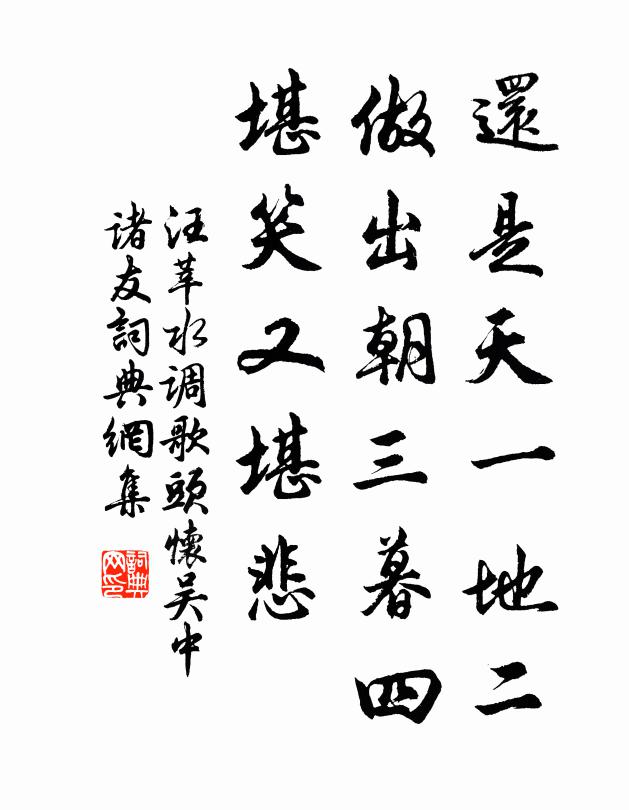 還是天一地二
做出朝三暮四
堪笑又堪悲
汪莘水调歌頭懷吴中
诸友詞典網集
詞典
网印